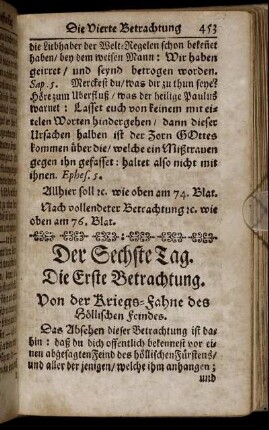 Die Vierte Betrachtung 453
die Liebhaber der Welt-Regelen schon bekeñet
haben/ bey dem weisen Mann: Wir haben
geirret/ und seynd betrogen worden.
Sap. 5. Merckest du/ was dir zu thun seye?
Höre zum Uberfluß/ was der heilige Paulus
warnet: Lasset euch von keinem mit ei-
telen Worten hindergehen/ dann dieser
Ursachen halben ist der Zorn GOttes
kommen über die/ welche ein Mißtrauen
gegen ihn gefasset: haltet also nicht mit
ihnen. Ephes. 5.
Allhier soll ꝛc. wie oben am 74. Blat.
Nach vollendeter Betrachtung ꝛc. wie
oben am 76. Blat.
Der Sechste Tag.
Die Erste Betrachtung.
Von der Kriegs-Fahne des
Höllischen Feindes.
Das Absehen dieser Betrachtung ist da-
hin: daß du dich offentlich bekennest vor ei-
nen abgesagten Feind des höllischen Fürstens/
und aller der jenigen/ welche ihm anhangen;
und